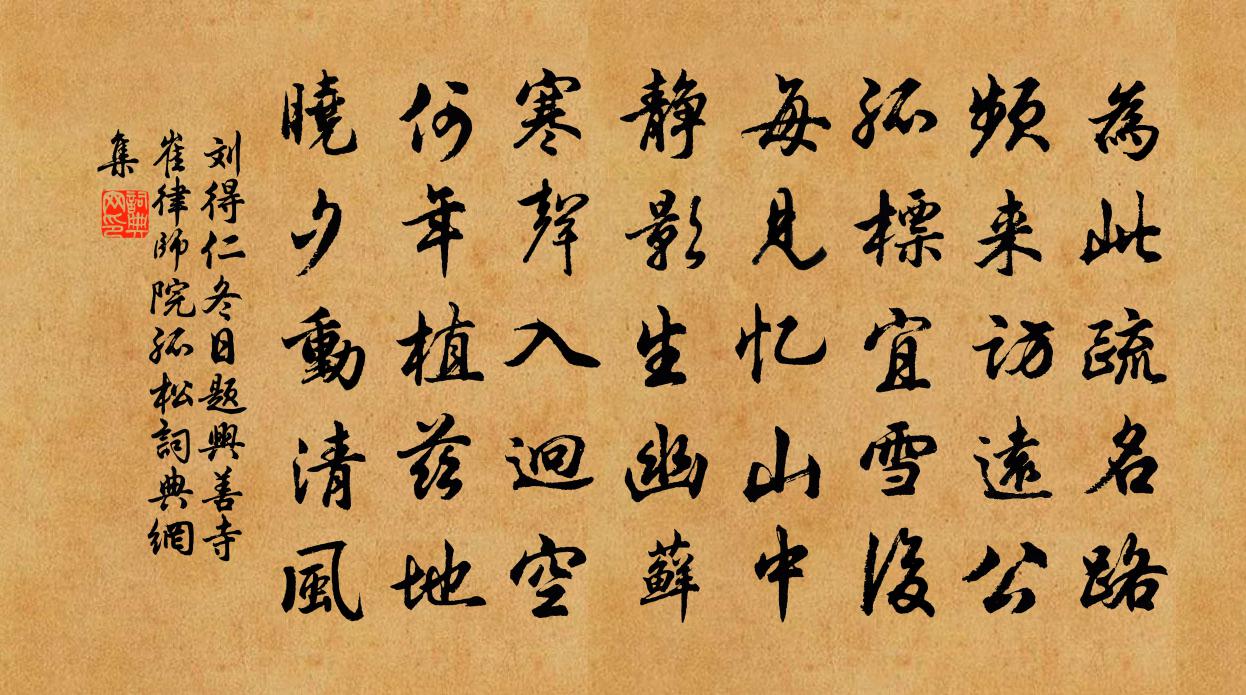 為此疏名路
頻来訪遠公
孤標宜雪後
每見忆山中
静影生幽蘚
寒聲入迥空
何年植茲地
曉夕動清風
刘得仁冬日题興善寺
崔律師院孤松詞典網
集
詞典网印